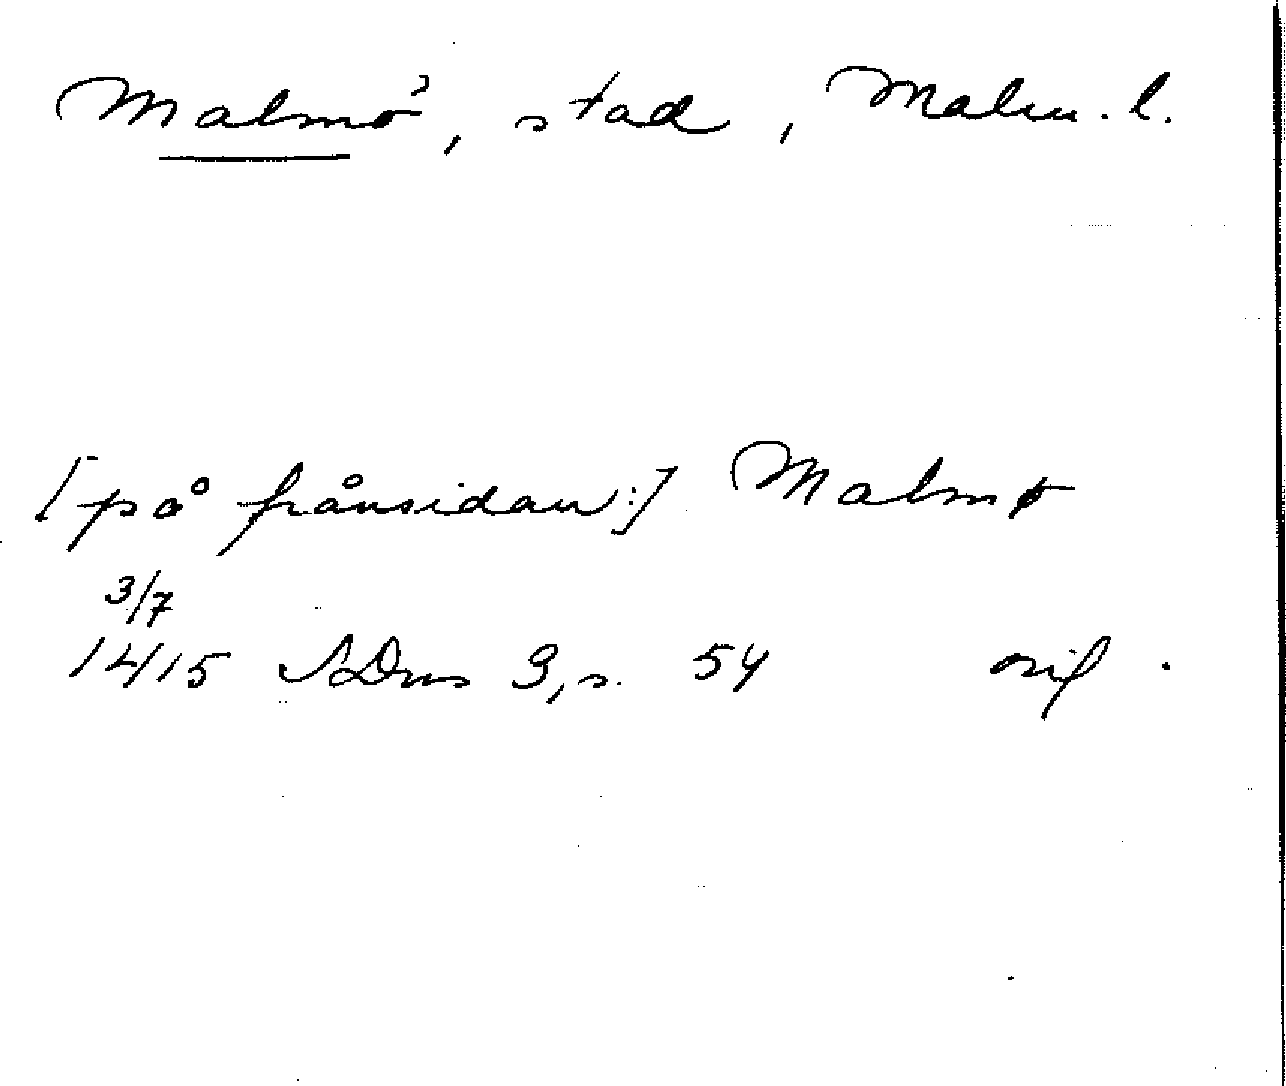 Malmö, stad, Malm. l.
[på frånsidan:] Malmø
3/7
1415 SDns 3, s. 54 orig .